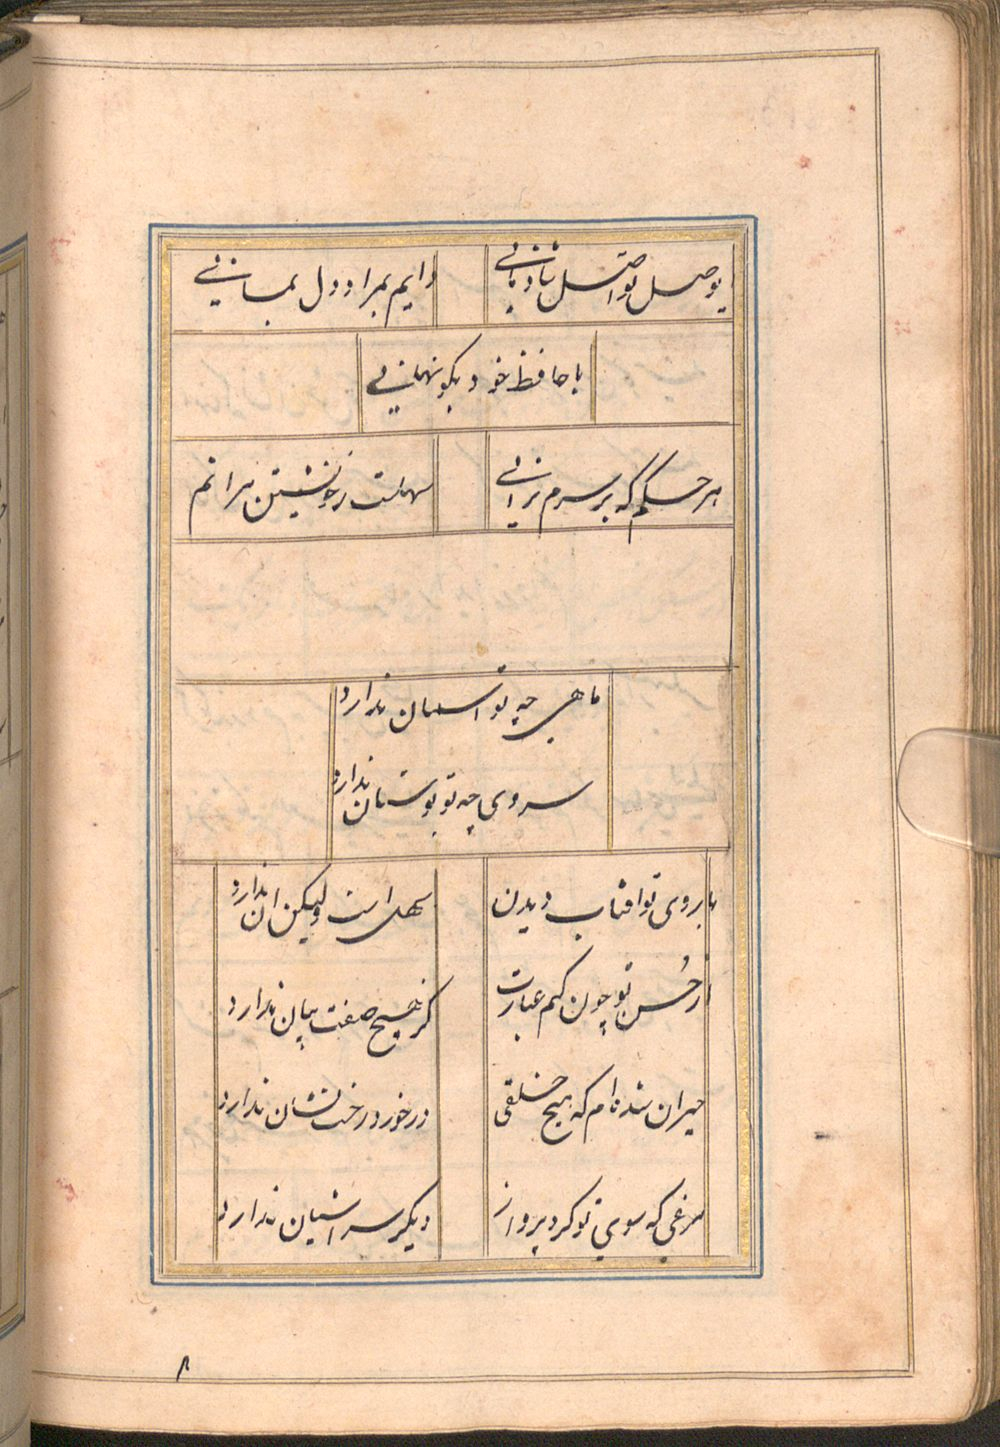 ای وصل تو اصل شادمانی دایم بمراد دل بمانی
با حافظ خود بگو نهانی
هر حکم که بر سرم برانی سهلست ز خویشتن مرانم
ماهی چه تو آسمان ندارد
سروی چه تو بوستان ندارد
با روی تو افتاب دیدن سهل است ولیکن ان ندارد
از حُسن تو چون کنم عبارت کز هیچ صفت بیان ندارد
حیران شده‌ام که هیچ خلقی در خورد رخت نشان ندارد
مرغی که سوی تو کرد پرواز دیگر سر اشیان ندارد